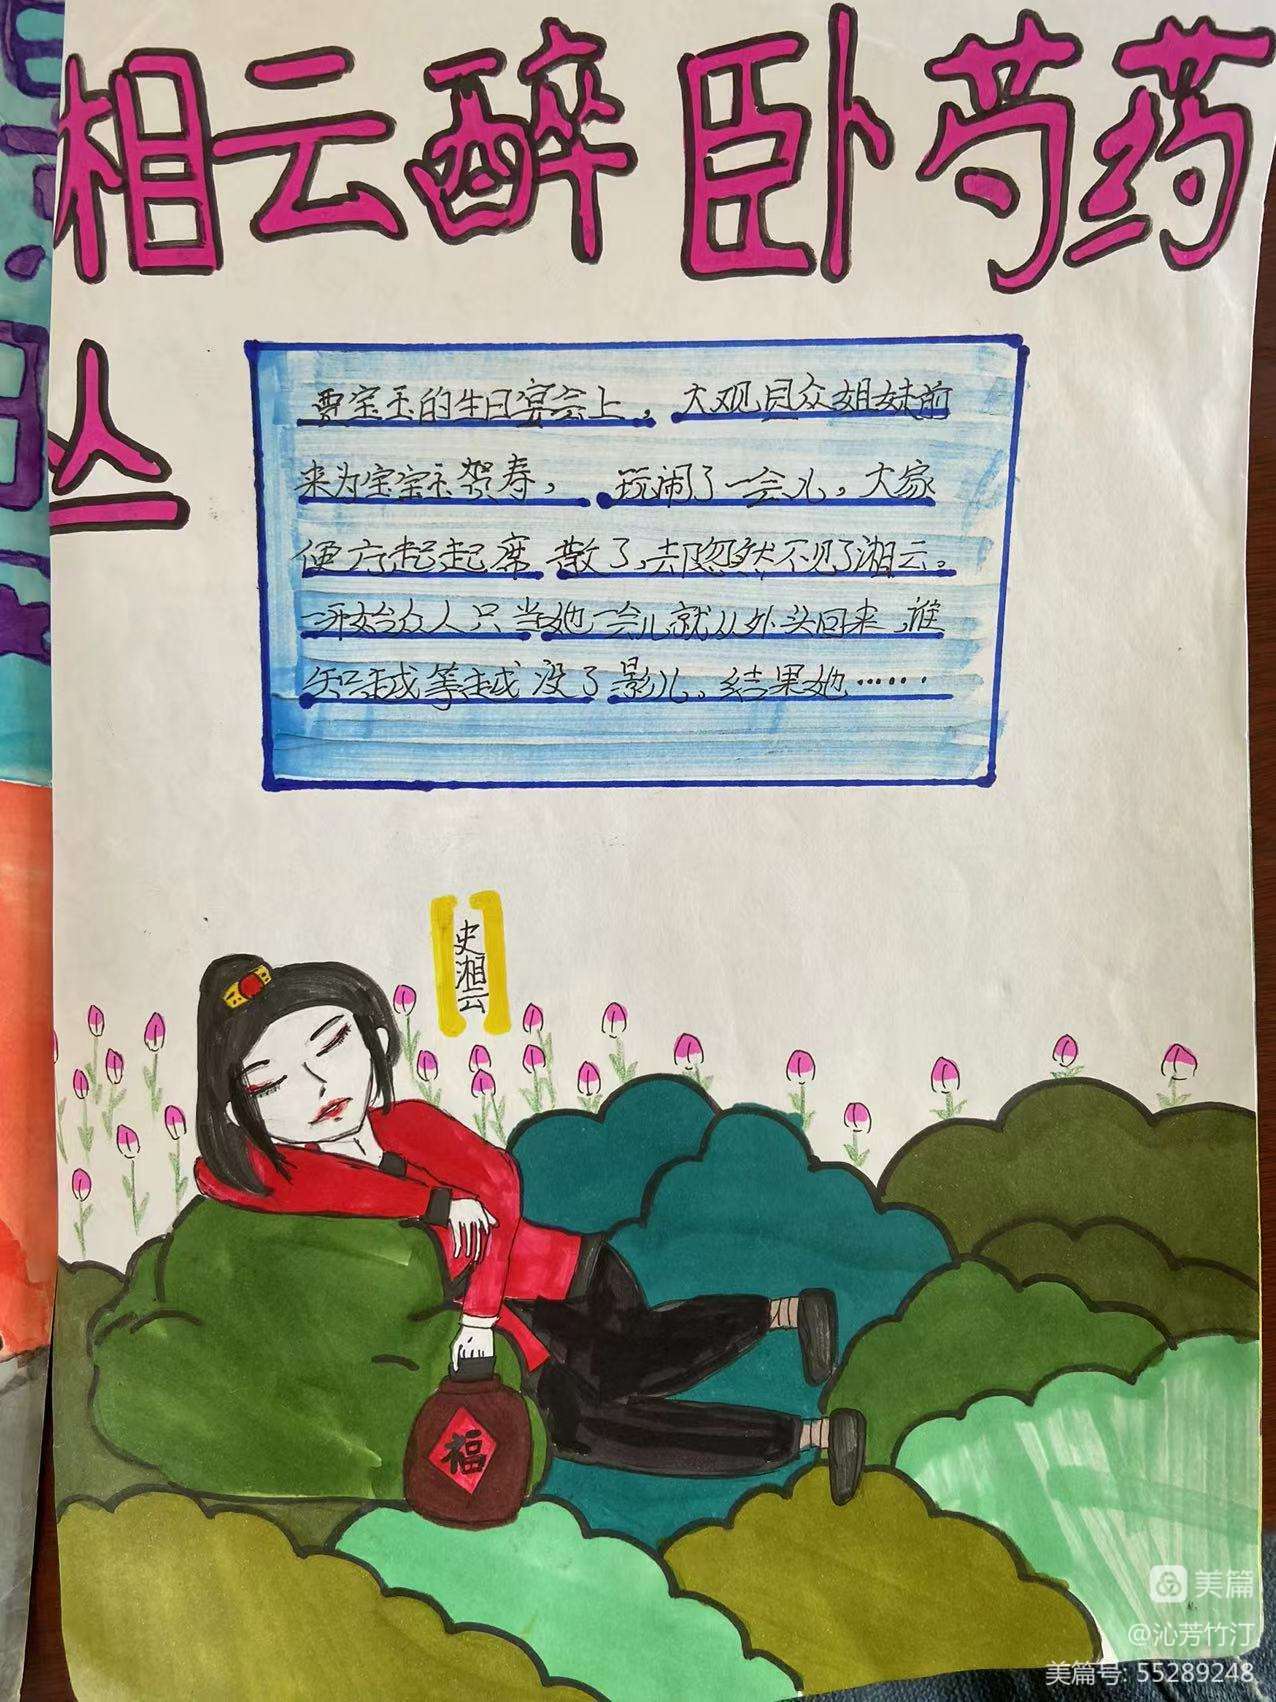 相云醉卧芍药
丛
贾宝玉的生日宴会上，大观园众姐妹前
来为宝宝玉贺寿，玩闹了一会儿，大家
便方起起席散了，去忽然不见了湘云。
一开始众人只当她一会儿就从外头回来，谁
知越等越没了影儿，结果她……
史湘云
福
美篇
@沁芳竹汀
美篇号: 55289248